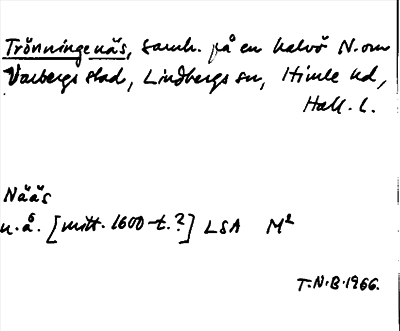 Trönningenäs, samh. på en halvö N. om
Varbergs stad, Lindbergs sn, Himle hd,
Hall. l.
Nääs
u. å. [mitt. 1600-t.?] LSA M²
T.N.B. 1966.